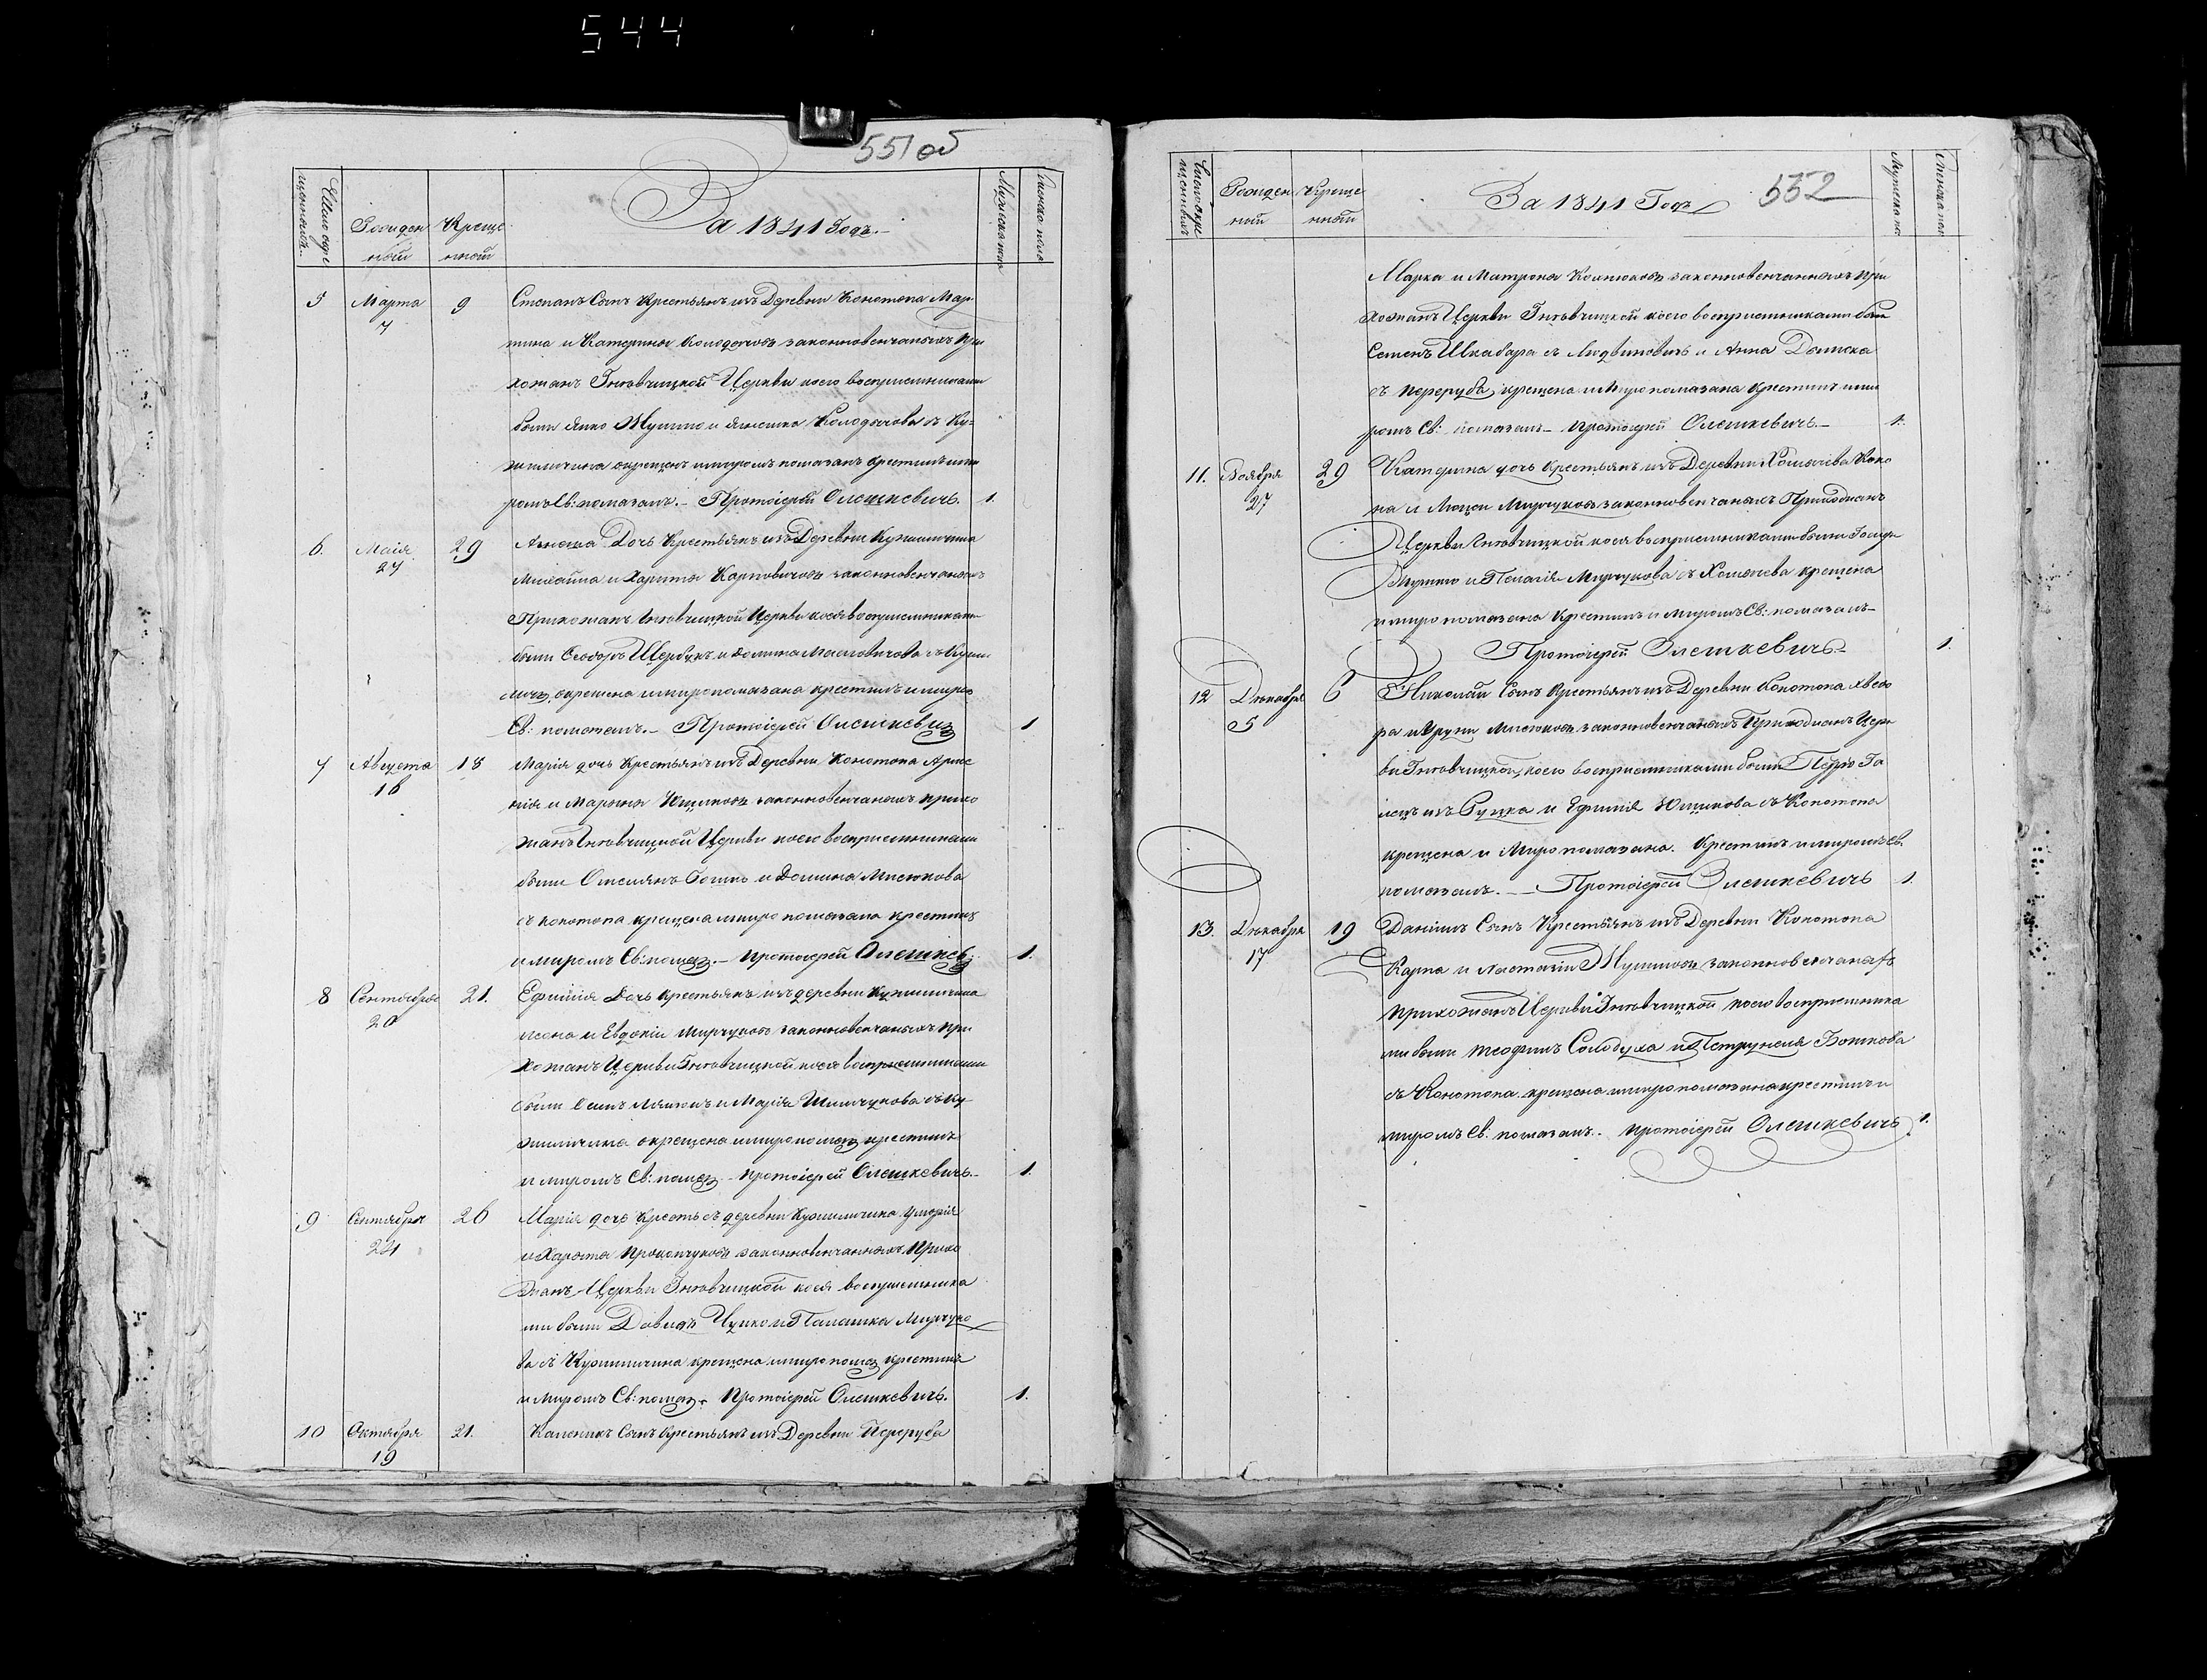 544
551 об
Число окре
щенныхъ
Рожден
ный
Креще
нный
За 1841 Годъ.
Мужеска пола
Женска пола
5 Марта 9 Степанъ Сынъ Крестьянъ изъ Деревни Конотопа Мар
7
тина и Катерины законновенчаныхъ при
хожанъ Гневчицкой Церкви коего восприемниками
были Янко и Колодычова съ Ку
окрещенъ и миромъ помазанъ крестилъ и ми
ромъ Св: помазалъ. – Протоіерей Олешкевичь. 1.
6. Маія 29 Дочь Крестьянъ изъ Деревни
27
Михаила и Харыты Карповичовъ законновенчаныхъ
Прихожанъ Гневчицкой Церкви коея восприемниками
были Ѳеодоръ Щербукъ и Домина съ
окрещена и миропомазана крестилъ и миро
Св: помазалъ. – Протоіерей Олешкевичъ 1
7 Августа 18 Марія дочь Крестьянъ изъ Деревни Конотопа Арте
16
мія и Марыны законновенчаныхъ прихо
жанъ Гневчицкой Церкви коего восприемниками
были и Домина Мисюкова
съ Конотопа крещена миропомазана крестилъ
и миромъ Св: помаз. – протоіерей Олешкев: 1.
8 Сентября 21. Ефимія Дочь крестьянъ изъ деревни
20
и Евдокіи Мирчуковъ законновенчаныхъ при
хожанъ Церкви Гневчицкой коея восприемниками
были и Марія съ Ку
окрещена миропомаз крестилъ
и миромъ Св: помаз – протоіерей Олешкевичь. 1.
9 Сентября 26 Марія дочь Кресть съ деревни
24
и Харыты Прокопчуковъ законновенчанныхъ Прихо
жанъ Церкви Гневчицкой коея восприемника
ми были Давидъ и Палашка Мирчуко
ва съ крещена миропомаз крестилъ
и миромъ Св: помаз. Протоіерей Олешкевичь. 1.
10 Октября 21. Каленикъ Сынъ Крестьянъ изъ Деревни Переруба
19
552
Число окре
щенныхъ
Рожден
ный
Креще
нный
За 1841 Годъ
Мужеска по
Женска пол
Марка и Матроны законновенчанныхъ при
хожанъ Церкви Гневчицкой коего восприемниками были
Семенъ Шкабара съ и Анна
съ Переруба, крещена и миропомазана Крестилъ и ми
ромъ Св: помазалъ – протоіерей Олешкевичь – 1.
11. Ноября 29 Катерина дочь Крестьянъ изъ Деревни Хомичева Коно
27
на и Мирчуковъ законновенчаныхъ Приходианъ
Церкви Гневчицкой коея восприемниками были
и Пелагія Мирчукова съ Хомичева крещена
и миропомазана Крестилъ и миромъ Св: помазалъ –
Протоіерей Олешкевичь – 1.
12 Декабря 6 Николай Сынъ Крестьянъ изъ Деревни Конотопа Хведо
5
ра и Мисюковъ законновенчаныхъ Приходианъ Церк
ви Гневчицкой, коего восприемниками были Петръ Га
изъ и Ефимія съ Конотопа
крещена и Миропомазана. Крестилъ и миромъ св.
помазалъ. – Протоіерей Олешкевичь 1.
13. Декабря 19 Даніилъ Сынъ Крестьянъ изъ Деревни Конотопа
17
Карпа и Настазіи законновенчаныхъ
прихожанъ Церкви Гневчицкой коего восприемника
ми были Теофилъ Солодуха и Петрунеля Бошкова
съ Конотопа крещена миропомазана крестилъ и
миромъ Св. помазалъ. протоіерей Олешкевичь. 1.